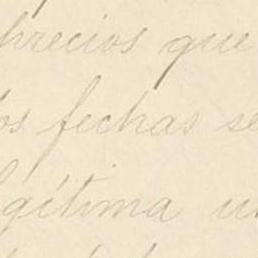 precios que
os fechas se
legítima un